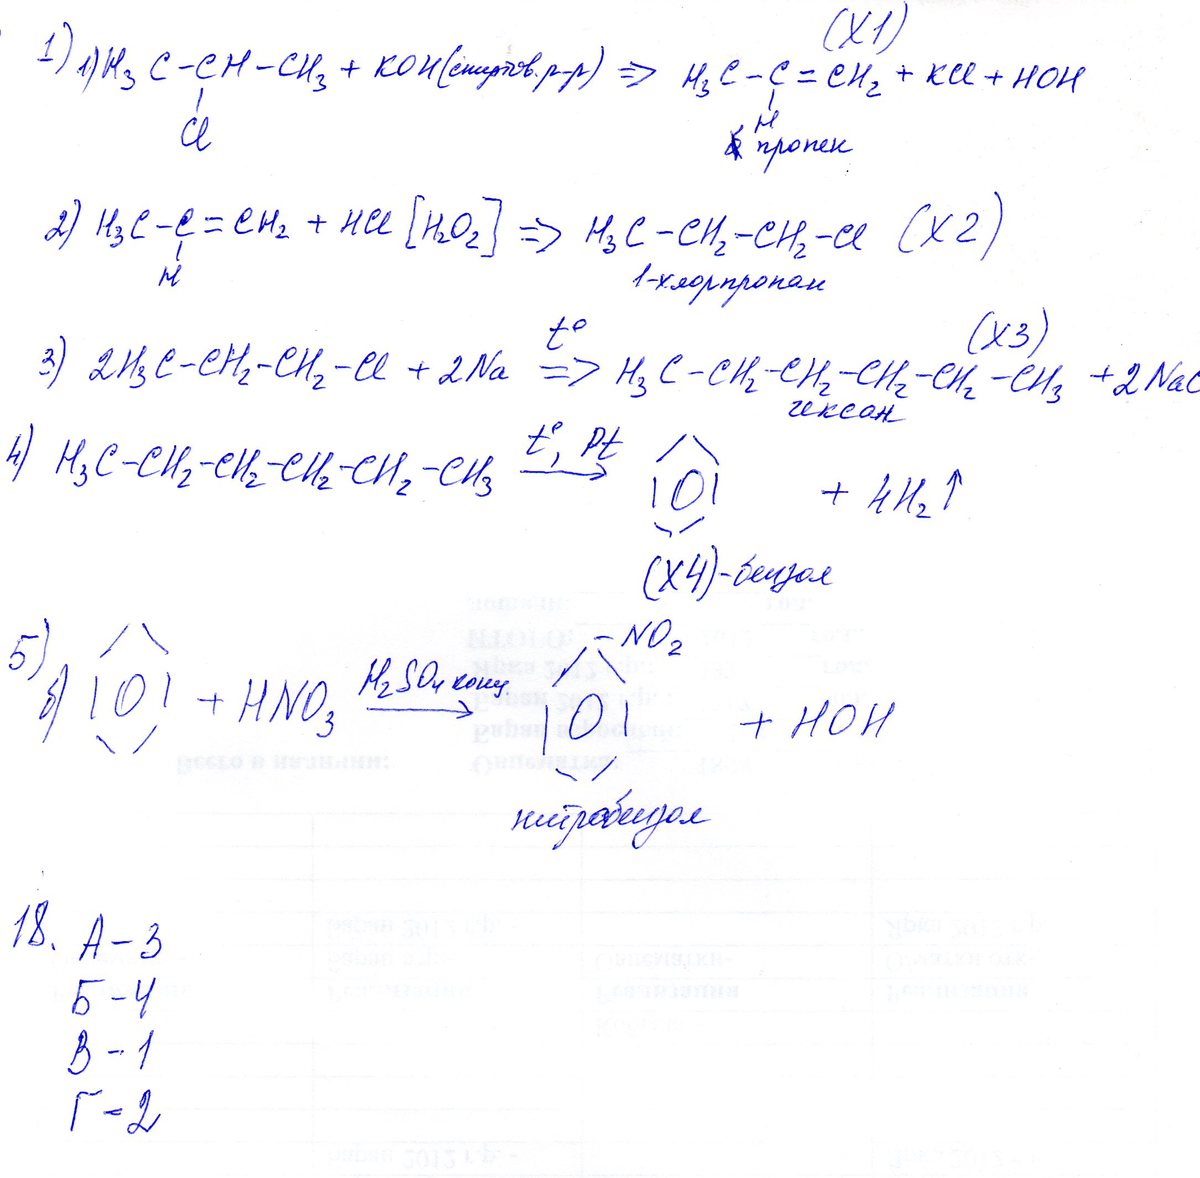 1) 1) H₃C-CH-CH₃ + KOH(спиртов. р-р) => H₃C-C=CH₂ + KCl + HOH
(X1)
Cl
H
пропен
2) H₃C-C=CH₂ + HCl [H₂O₂] => H₃C-CH₂-CH₂-Cl (X2)
H
1-хлорпропан
t° (X3)
3) 2H₃C-CH₂-CH₂-Cl + 2Na => H₃C-CH₂-CH₂-CH₂-CH₂-CH₃ + 2NaC
гексан
4) H₃C-CH₂-CH₂-CH₂-CH₂-CH₃ t°, Pt → + 4H₂↑
(X4)-бензол
5) б) + HNO₃ H₂SO₄ конц → -NO₂ + HOH
нитробензол
18. А-3
Б-4
В-1
Г-2